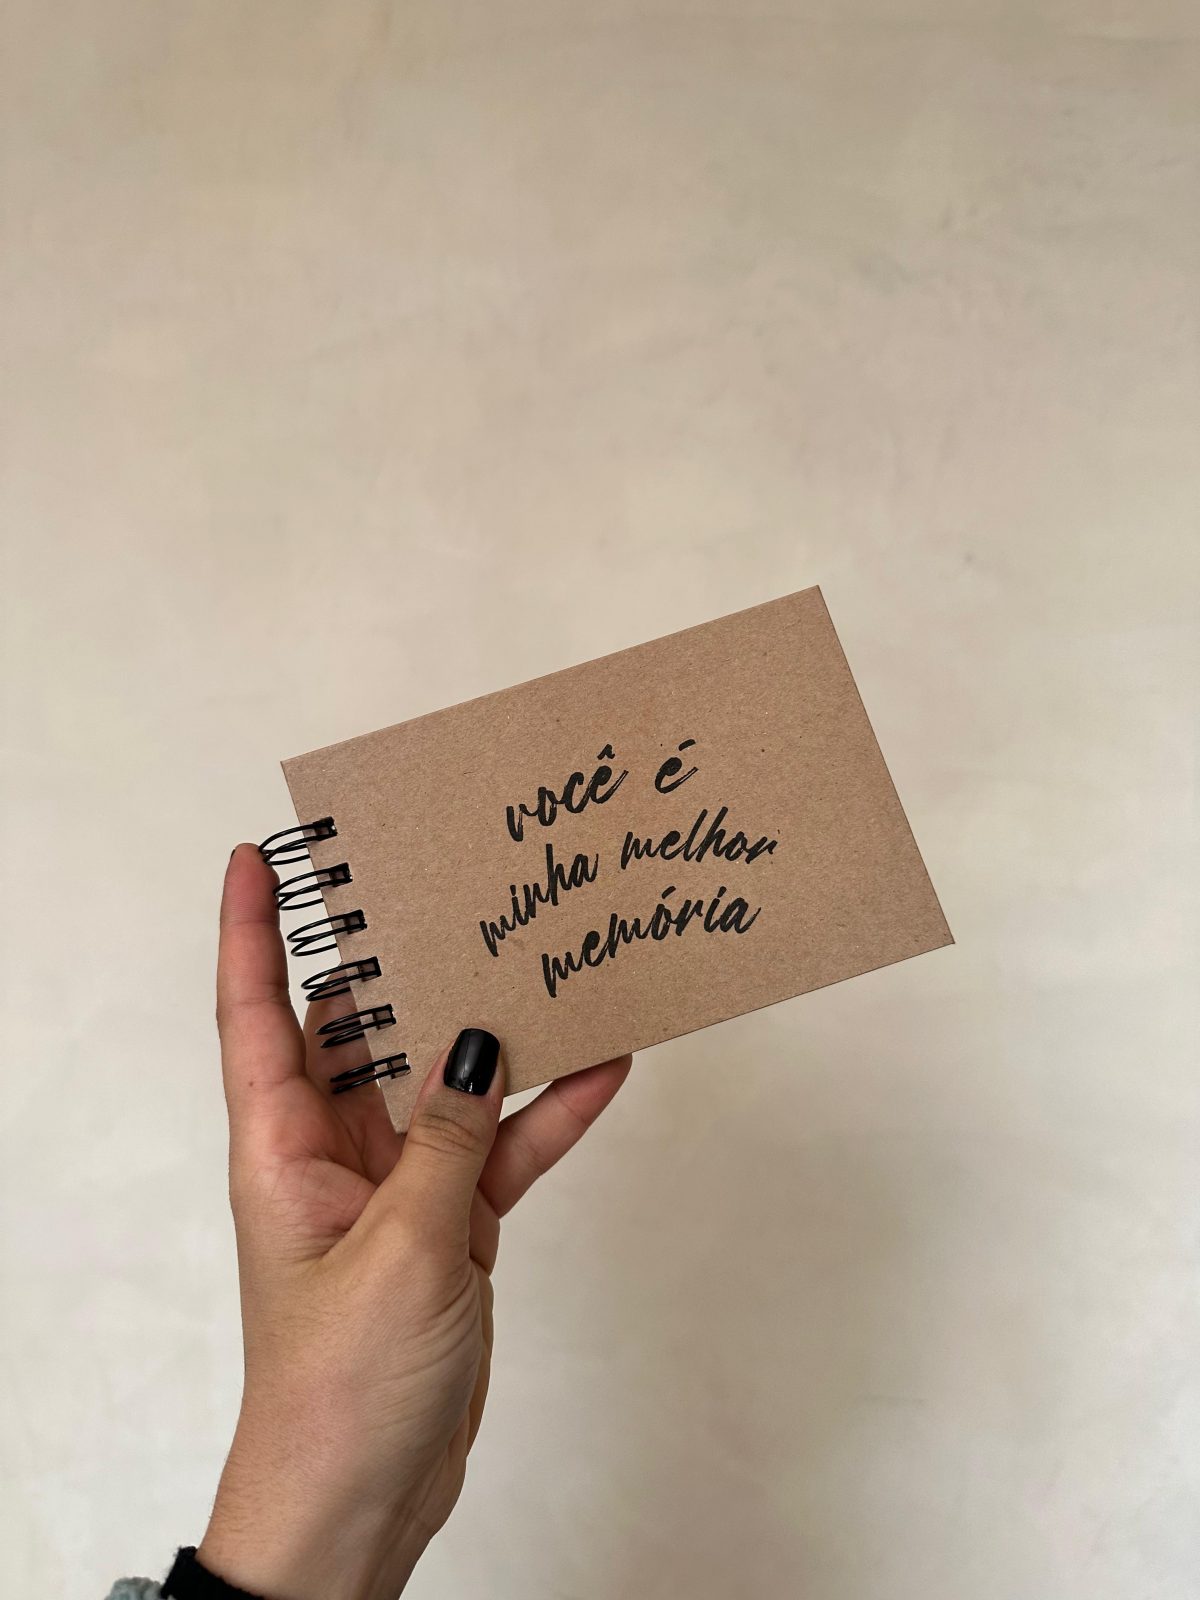 você é
minha melhor
memória